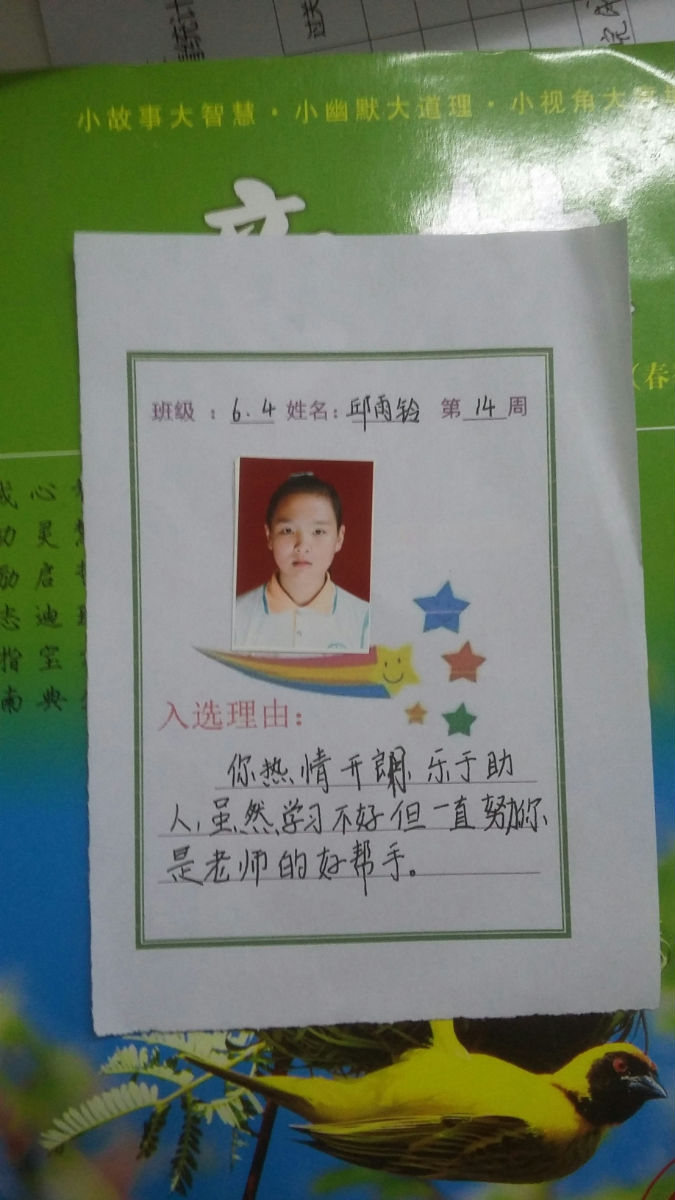 小故事大智慧·小幽默大道理·小视角大
（春
班级：6.4 姓名：邱雨铃 第14周
入选理由：
你热情开朗、乐于助
人，虽然学习不好但一直努力，你
是老师的好帮手。
心
灵
启
迪
宝
典
励
志
指
南